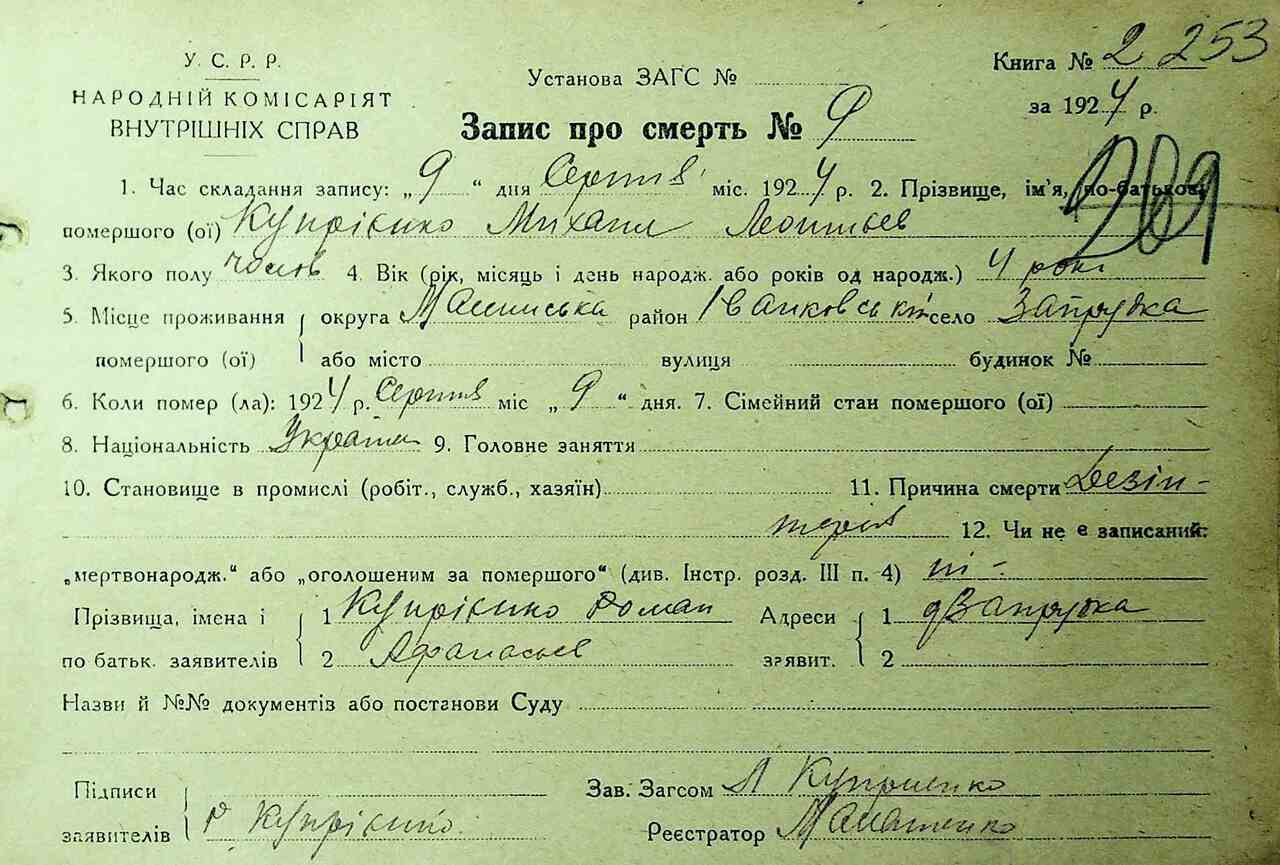 У. С. Р. Р.
НАРОДНІЙ КОМІСАРІЯТ
ВНУТРІШНІХ СПРАВ
Установа ЗАГС №
Книга № 2 253
за 1924 р.
Запис про смерть № 9
269
1. Час складання запису: „9“ дня Серпня міс. 1924 р. 2. Прізвище, ім'я, по-батькові
помершого (ої) Купрієнко Михаил Леонтьев
3. Якого полу чолов 4. Вік (рік, місяць і день народж. або років од народж.) 4 роки
5. Місце проживання округа район Іванковський село Запрудка
помершого (ої) або місто вулиця будинок №
6. Коли помер (ла): 1924 р. Серпня міс „9“ дня. 7. Сімейний стан помершого (ої)
8. Національність Україн 9. Головне заняття
10. Становище в промислі (робіт., служб., хазяїн) 11. Причина смерти Дезін-
терія 12. Чи не є записаний:
„мертвонародж.“ або „оголошеним за помершого“ (див. Інстр. розд. III п. 4) ні -
Прізвища, імена і 1 Купрієнко Роман Адреси 1 д Запрудка
по батьк. заявителів 2 Афанасьев заявит. 2
Назви й №№ документів або постанови Суду
Підписи Зав. Загсом Л Куприенко
заявителів Р Купрієнко Реєстратор